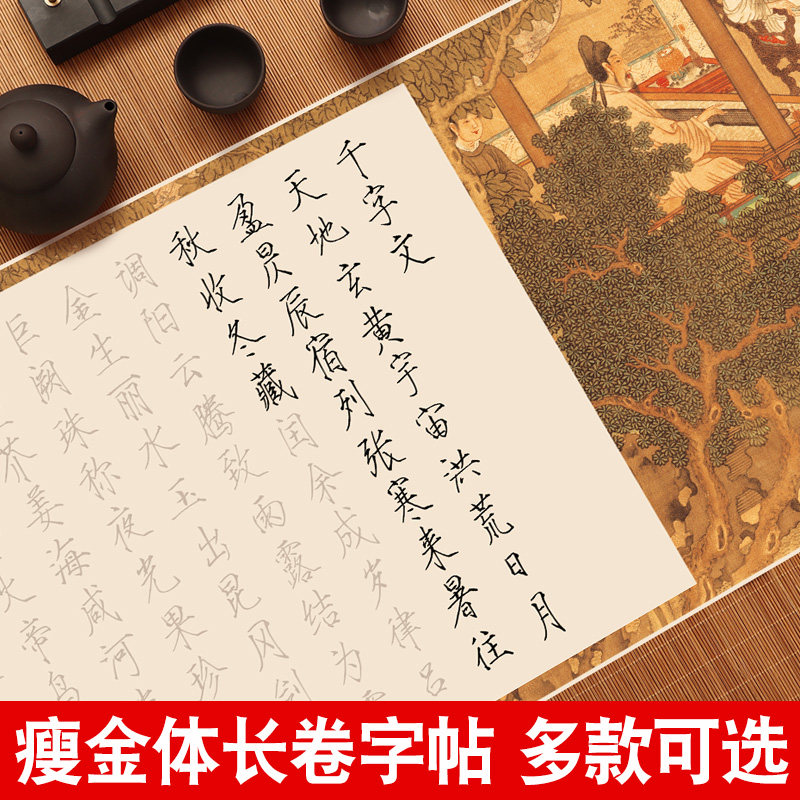 千字文
天地玄黄宇宙洪荒日月
盈昃辰宿列张寒来暑往
秋收冬藏闰余成岁律吕
调阳云腾致雨露结为
金生丽水玉出昆冈剑
巨阙珠称夜光果珍
芥姜海咸河
火帝鸟
瘦金体长卷字帖 多款可选